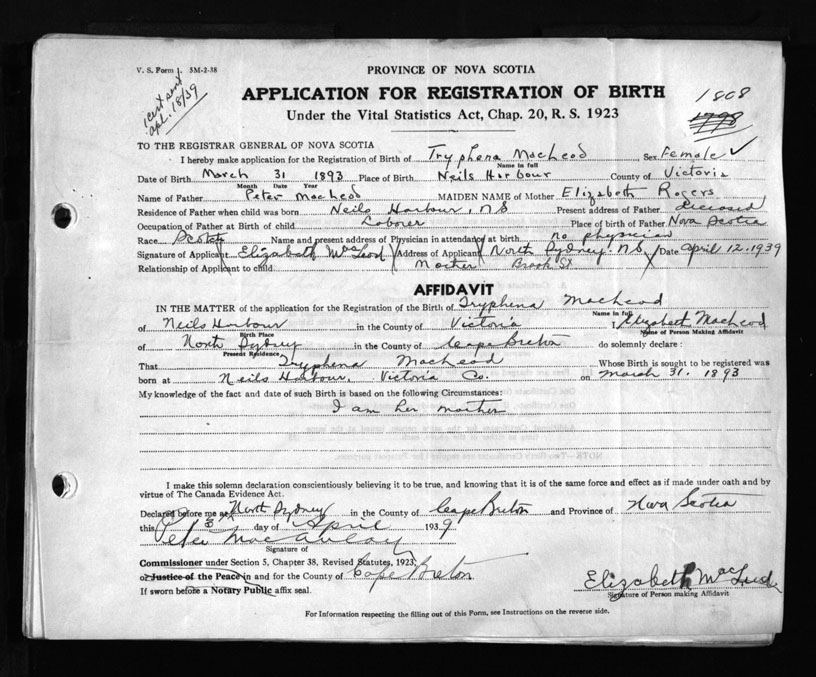 V. S. Form 1. 5M-2-38
1 cert sent
apl. 18/39
PROVINCE OF NOVA SCOTIA
APPLICATION FOR REGISTRATION OF BIRTH
1808
1798
Under the Vital Statistics Act, Chap. 20, R. S. 1923
TO THE REGISTRAR GENERAL OF NOVA SCOTIA
I hereby make application for the Registration of Birth of Tryphena MacLeod Sex Female ✓
Name in full
Date of Birth March 31 1893 Place of Birth Neils Harbour County of Victoria
Month Date Year
Name of Father Peter MacLeod MAIDEN NAME of Mother Elizabeth Rogers
Residence of Father when child was born Neils Harbour, NS Present address of Father deceased
Occupation of Father at Birth of child Laborer Place of birth of Father Nova Scotia
Race Scotch Name and present address of Physician in attendance at birth no physician
Signature of Applicant Elizabeth McLeod Address of Applicant North Sydney NS Date April 12. 1939
Relationship of Applicant to child Mother Brook St
AFFIDAVIT
IN THE MATTER of the application for the Registration of the Birth of Tryphena MacLeod
Name in full
of Neils Harbour in the County of Victoria I Elizabeth MacLeod
Birth Place Name of Person Making Affidavit
of North Sydney in the County of Cape Breton do solemnly declare :
Present Residence
That Tryphena MacLeod Whose Birth is sought to be registered was
born at Neils Harbour, Victoria Co. on March 31. 1893
My knowledge of the fact and date of such Birth is based on the following Circumstances:
I am her mother
I make this solemn declaration conscientiously believing it to be true, and knowing that it is of the same force and effect as if made under oath and by
virtue of The Canada Evidence Act.
Declared before me at North Sydney in the County of Cape Breton and Province of Nova Scotia
this day of April 1939
Peter MacAulay
Signature of
Commissioner under Section 5, Chapter 38, Revised Statutes, 1923,
or Justice of the Peace in and for the County of Cape Breton
If sworn before a Notary Public affix seal.
Elizabeth MacLeod
Signature of Person making Affidavit
For Information respecting the filling out of this Form, see Instructions on the reverse side.